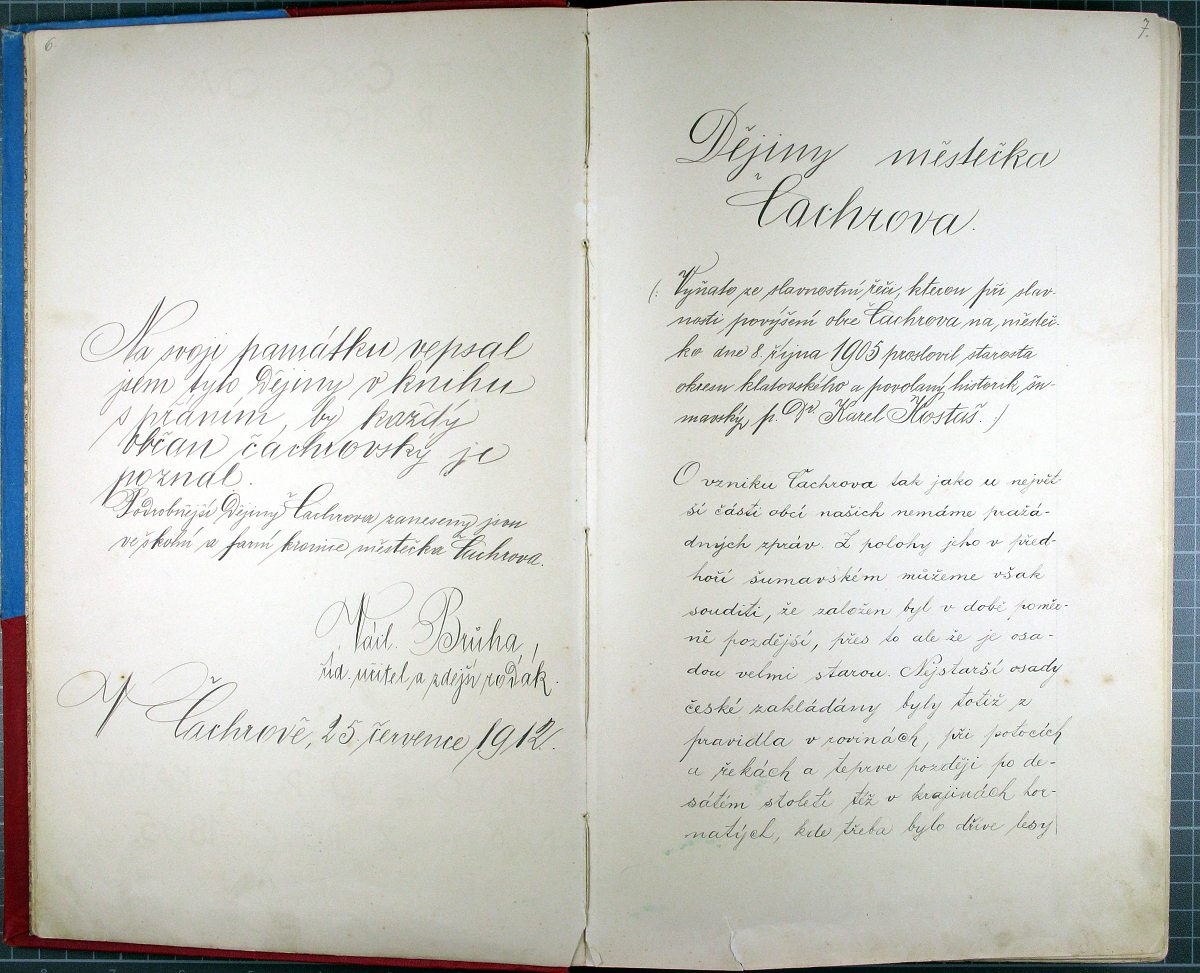 6
Na svoji památku vepsal
jsem tyto Dějiny v knihu
s přáním, by každý
občan čachrovský je
poznal.
Podrobnější Dějiny Čachrova zaneseny jsou
ve školní a farní kronice městečka Čachrova.
Václ. Brůha,
říd. učitel a zdejší rodák.
V Čachrově, 25. července 1912.
7.
Dějiny městečka
Čachrova.
(: Vyňato ze slavnostní řeči, kterou při slav-
nosti povýšení obce Čachrova na městeč-
ko dne 8. října 1905 proslovil starosta
okresu klatovského a povolaný historik šu-
mavský, p. Dr. Karel Hostaš. :)
O vzniku Čachrova tak jako u největ-
ší části obcí našich nemáme pražá-
dných zpráv. Z polohy jeho v před-
hoří šumavském můžeme však
souditi, že založen byl v době poměr-
ně pozdější, přes to ale že je osa-
dou velmi starou. Nejstarší osady
české zakládány byly totiž z
pravidla v rovinách, při potocích
a řekách a teprve později po de-
sátém století též v krajinách hor-
natých, kde třeba bylo dříve lesy